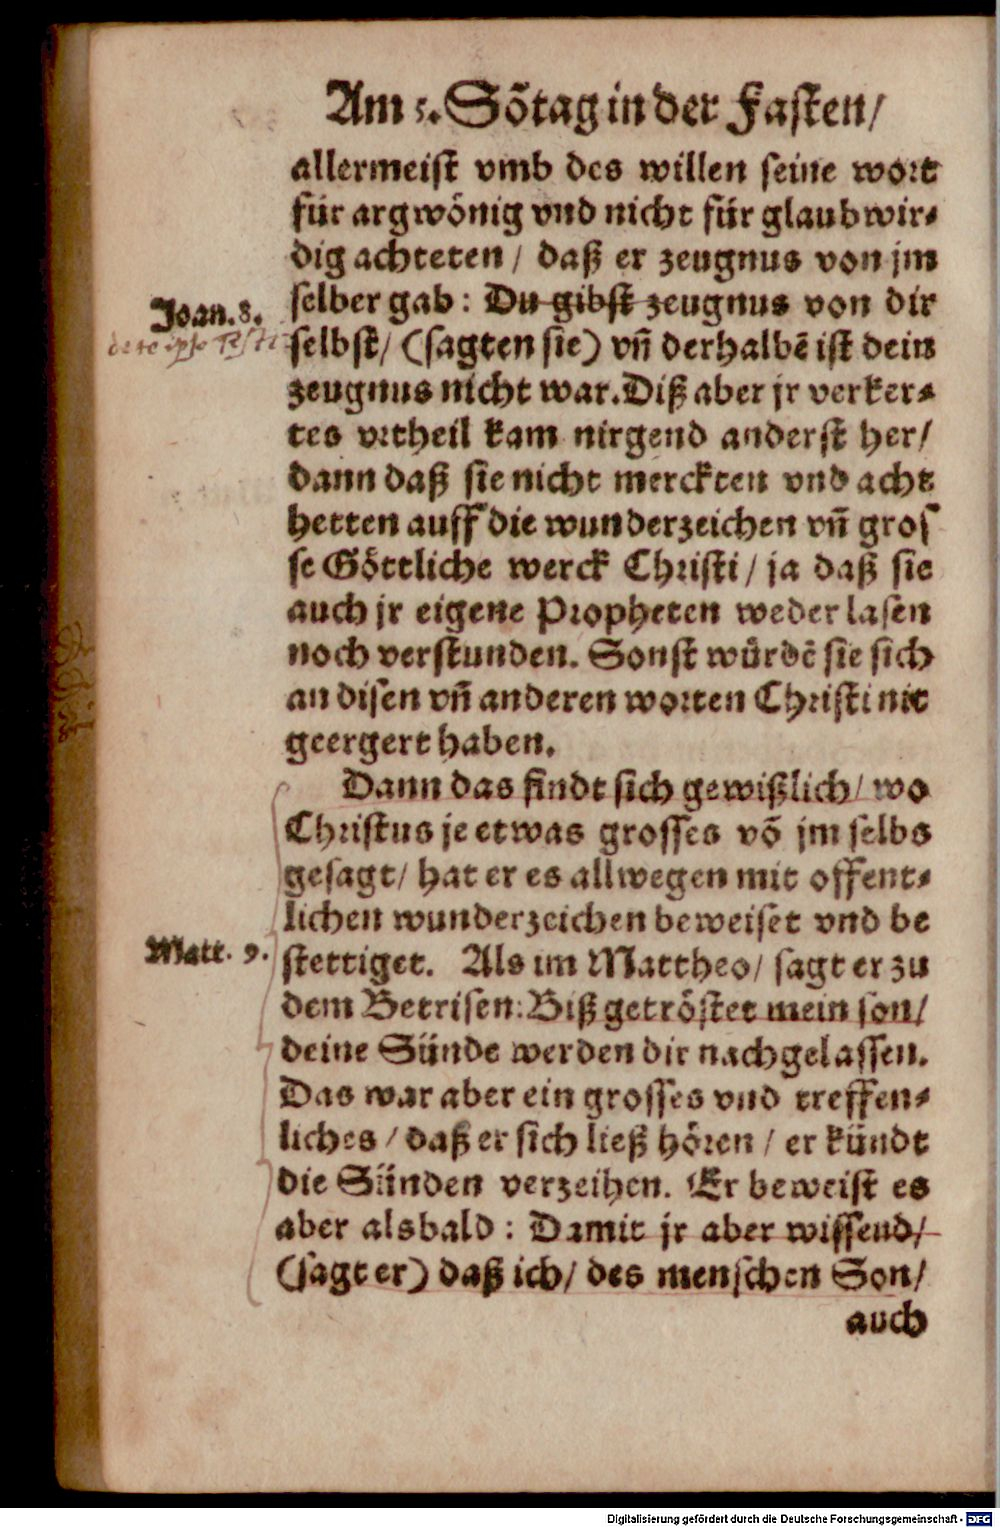 Am 5. Sõtag in der Fasten/
allermeist vmb des willen seine wort
für argwönig vnd nicht für glaubwir⸗
dig achteten / daß er zeugnus von jm
selber gab : Du gibst zeugnus von dir
Joan. 8.
selbst/ (sagten sie) vñ derhalbẽ ist dein
zeugnus nicht war. Diß aber jr verker⸗
tes vrtheil kam nirgend anderst her/
dann daß sie nicht merckten vnd acht
hetten auff die wunderzeichen vñ gros
se Göttliche werck Christi / ja daß sie
auch jr eigene Propheten weder lasen
noch verstunden. Sonst würdẽ sie sich
an disen vñ anderen worten Christi nit
geergert haben.
Dann das findt sich gewißlich/ wo
Christus je etwas grosses võ jm selbs
gesagt/ hat er es allwegen mit offent⸗
lichen wunderzeichen beweiset vnd be
Matt. 9.
stettiget. Als im Mattheo/ sagt er zu
dem Betrisen: Biß getröstet mein son/
deine Sünde werden dir nachgelassen.
Das war aber ein grosses vnd treffen⸗
liches / daß er sich ließ hören / er kündt
die Sünden verzeihen. Er beweist es
aber alsbald : Damit jr aber wissend/
(sagt er) daß ich/ des menschen Son/
auch
Digitalisierung gefördert durch die Deutsche Forschungsgemeinschaft - DFG